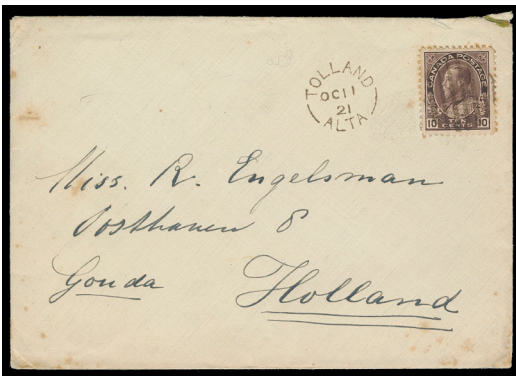 TOLLAND
OC 11
21
ALTA
CANADA POSTAGE
10 TEN 10
CENTS
Miss. R. Engelsman
Oosthaven 8
Gouda Holland